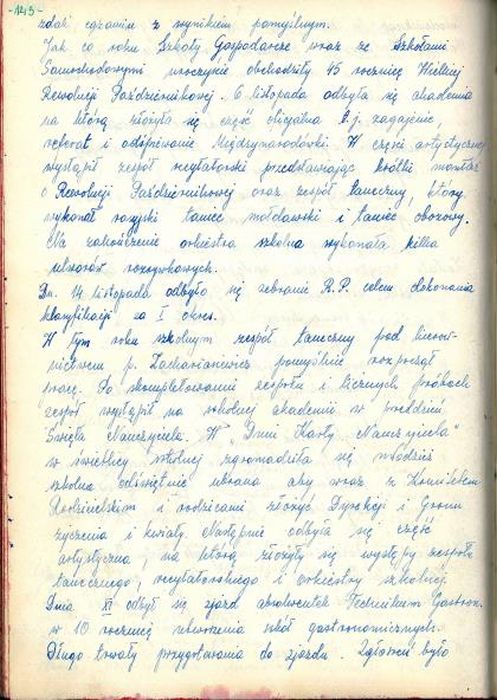 -123-
zdać egzamin z wynikiem pomyślnym.
Jak co roku Szkoły Gospodarcze wraz ze Szkołami
Samochodowymi uroczyście obchodziły 45 rocznicę Wielkiej
Rewolucji Październikowej. 6 listopada odbyła się akademia
na którą złożyła się część oficjalna t.j. zagajenie,
referat i odśpiewanie Międzynarodówki. W części artystycznej
wystąpił zespół recytatorski przedstawiając krótki montaż
o Rewolucji Październikowej oraz zespół taneczny, który
wykonał rosyjski taniec mołdawski i taniec obozowy.
Na zakończenie orkiestra szkolna wykonała kilka
utworów rozrywkowych.
Dn. 14 listopada odbyło się zebranie R.P. celem dokonania
klasyfikacji za I okres.
W tym roku szkolnym zespół taneczny pod kierow-
nictwem p. Zacharianiewicz pomyślnie rozpoczął
pracę. Po skompletowaniu zespołu i licznych próbach
zespół wystąpił na szkolnej akademii w przeddzień
Święta Nauczyciela. W "Dniu Karty Nauczyciela"
w świetlicy szkolnej zgromadziła się młodzież
szkolna odświętnie ubrana aby wraz z Komitetem
Rodzicielskim i rodzicami złożyć Dyrekcji i Gronu
życzenia i kwiaty. Następnie odbyła się część
artystyczna, na którą złożyły się występy zespołu
tanecznego, recytatorskiego i orkiestry szkolnej.
Dnia XI odbył się zjazd absolwentek Technikum Gastron.
w 10 rocznicę utworzenia szkół gastronomicznych.
Długo trwały przygotowania do zjazdu. Zgłoszeń było